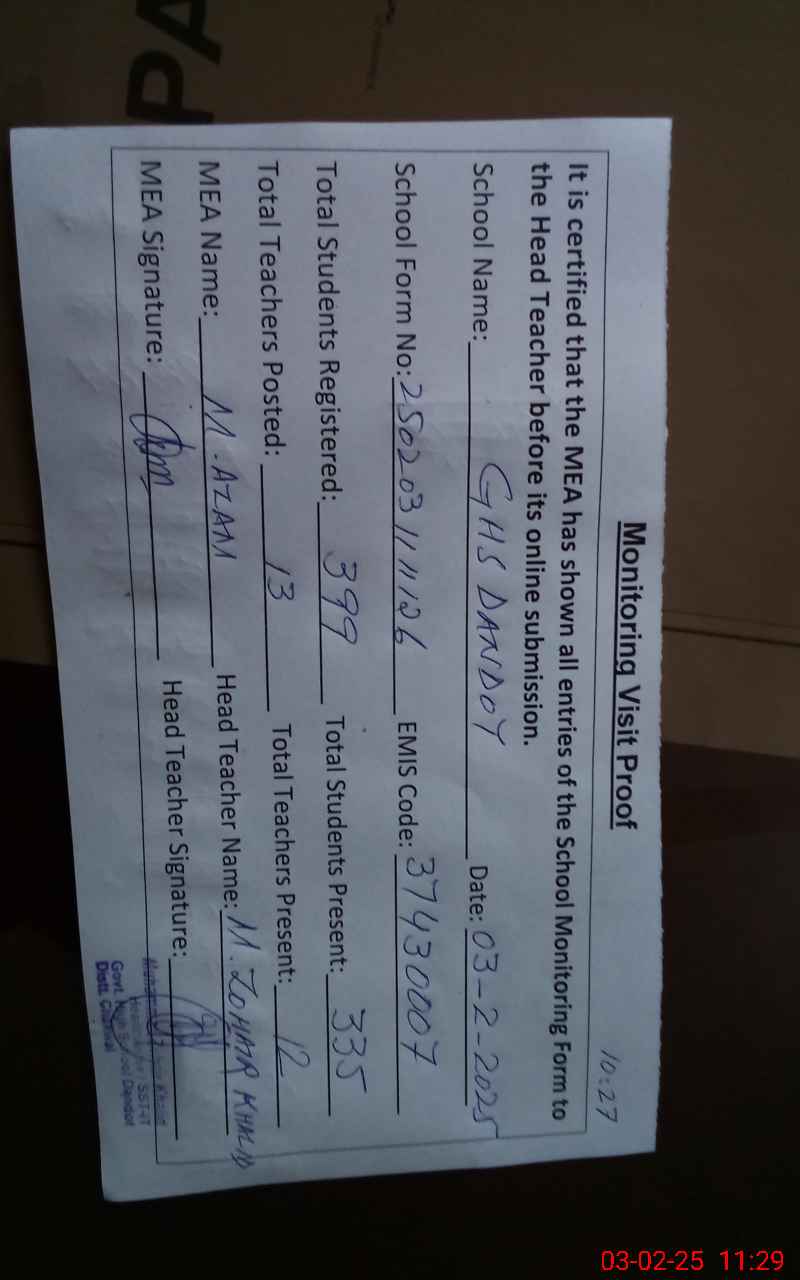 PA
10:27
Monitoring Visit Proof
It is certified that the MEA has shown all entries of the School Monitoring Form to
the Head Teacher before its online submission.
School Name: GHS DANDOY Date: 03-2-2025
School Form No: 250203111126 EMIS Code: 37430007
Total Students Registered: 399 Total Students Present: 335
Total Teachers Posted: 13 Total Teachers Present: 12
MEA Name: M. AZAM Head Teacher Name: M. ZOHAIR KHALID
MEA Signature: Head Teacher Signature:
SST-IT
Govt. High School Dandot
Distt. Chakwal
03-02-25 11:29